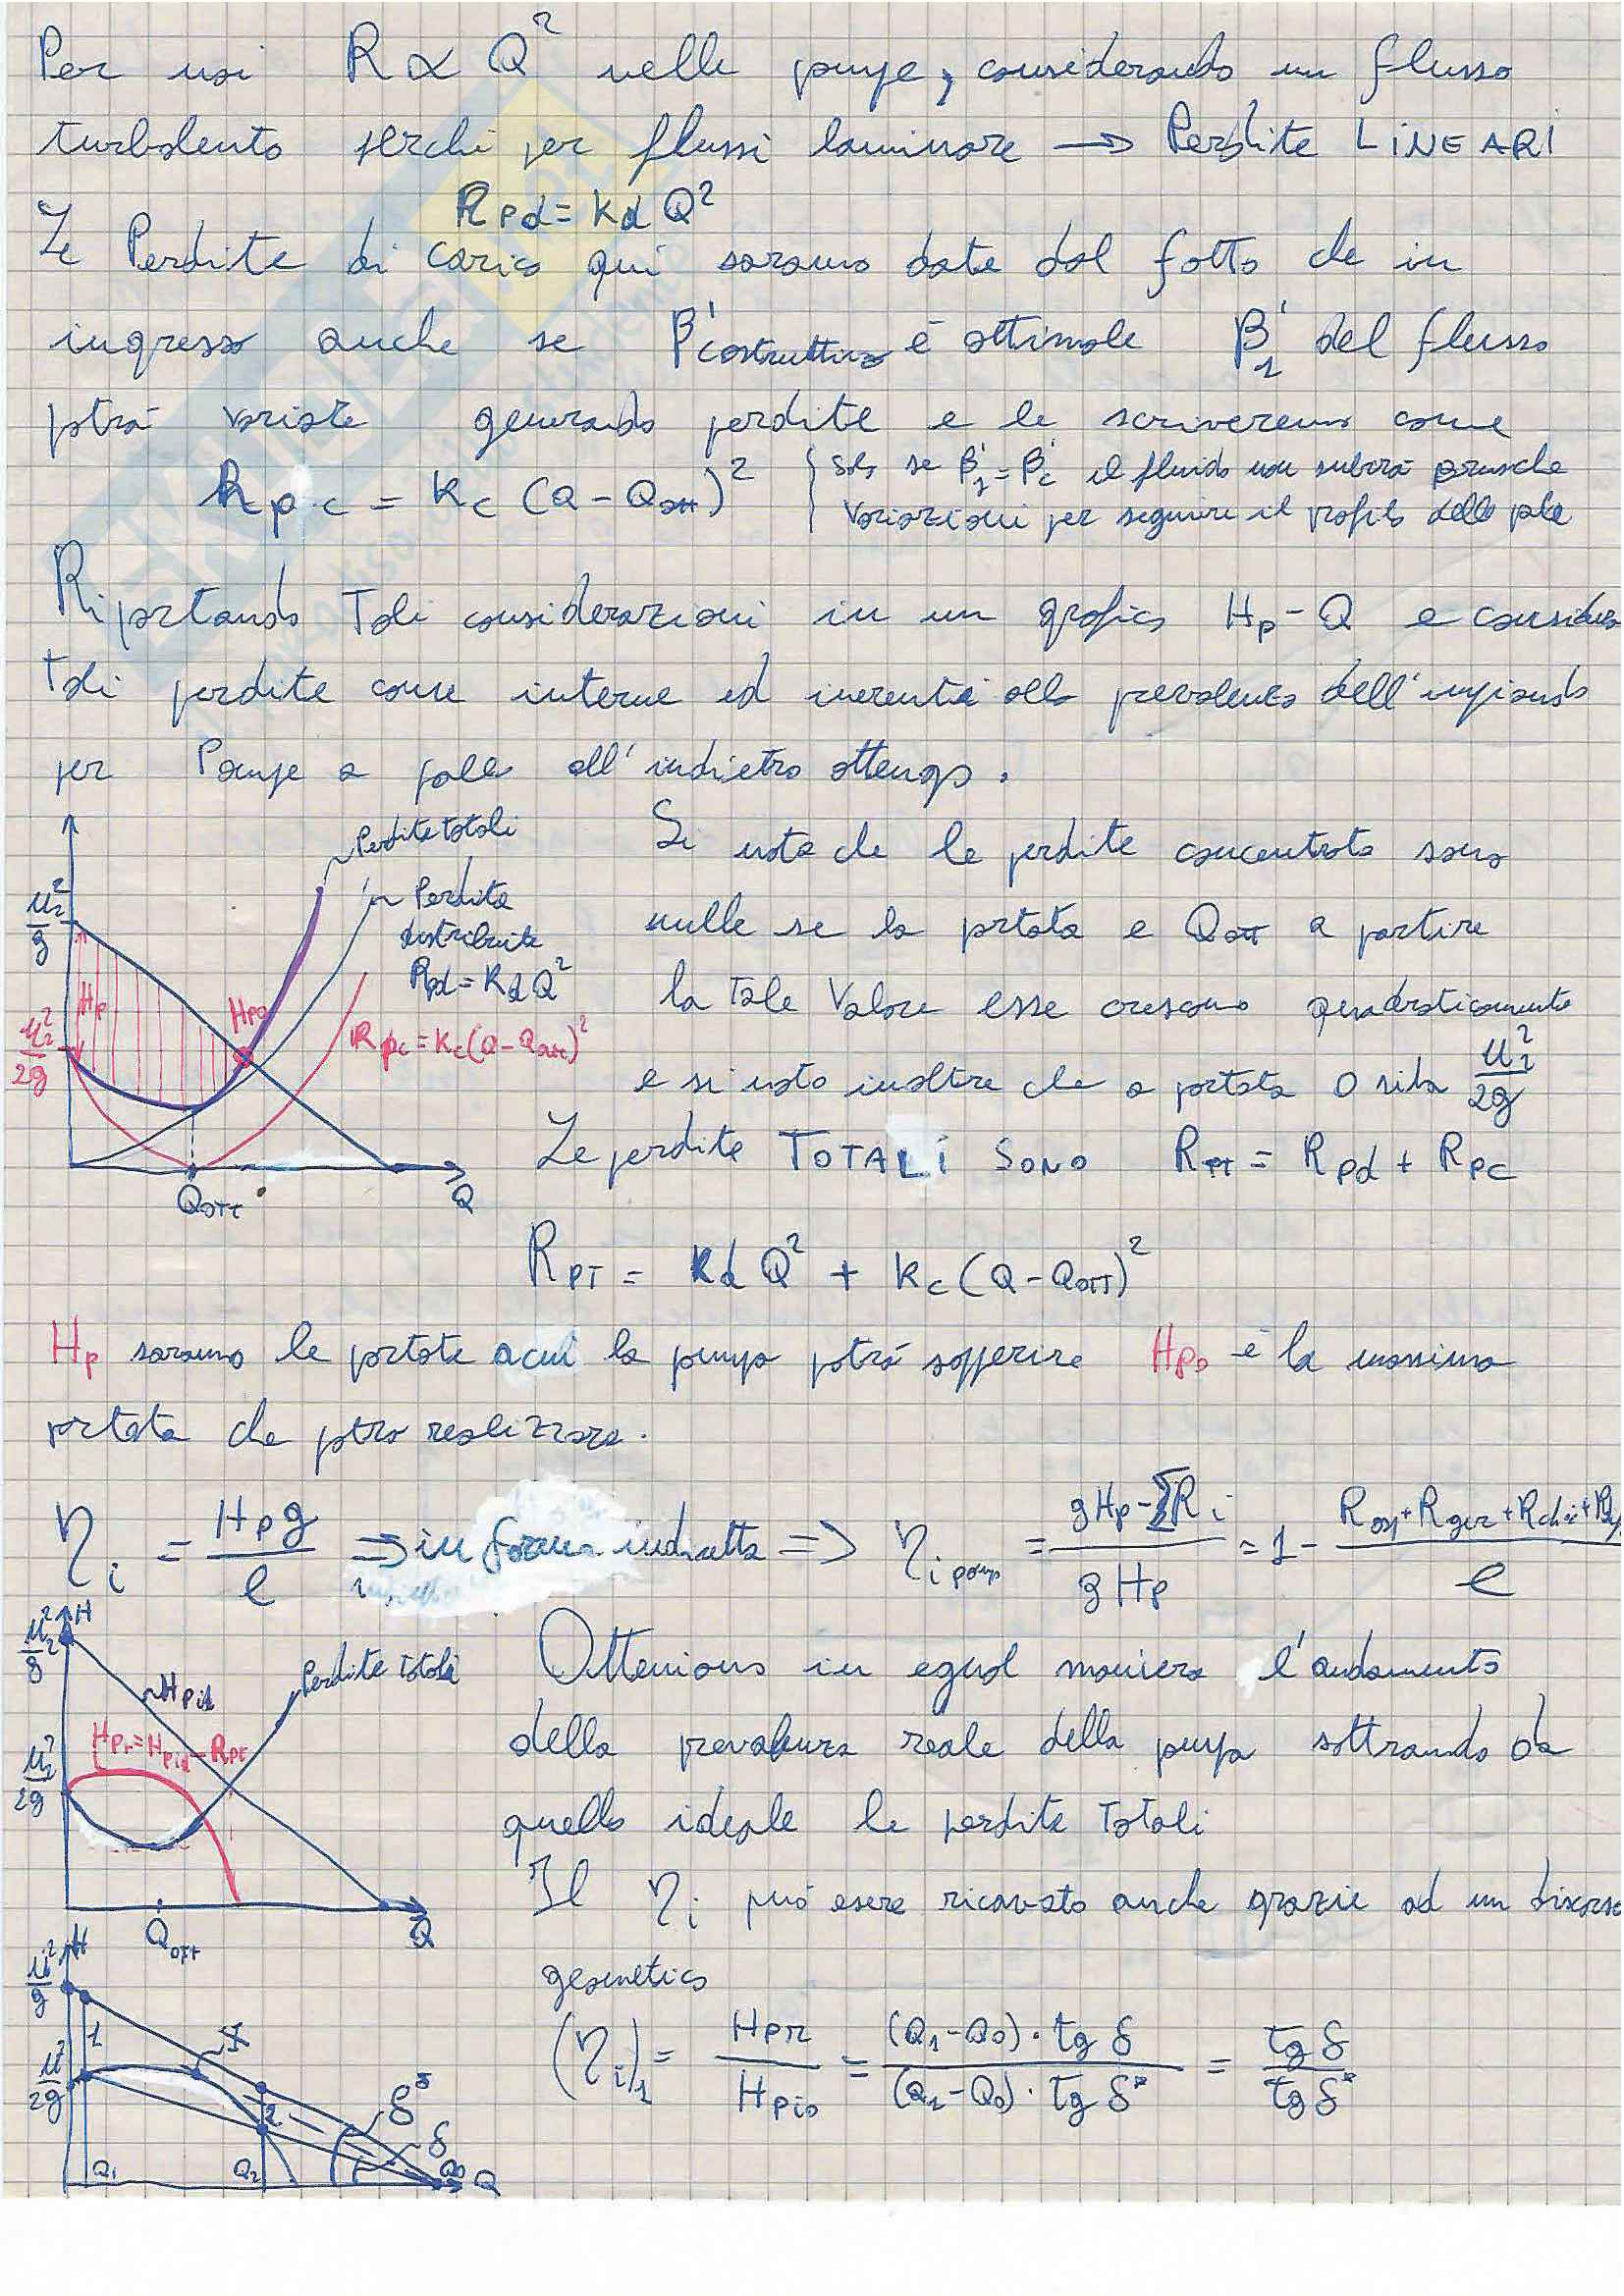 Per noi R ∝ Q² nelle pompe, considerando un flusso
turbolento perchè per flussi laminare → Perdite LINEARI
Rpd = Kd Q²
Le Perdite di carico qui saranno date dal fatto che in
ingresso anche se β'costruttivo è ottimale β'1 del flusso
potrà variare generando perdite e le scriveremo come
Rpc = Kc (Q - Qott)² { Solo se β'1 = β'c il fluido non subirà brusche
variazioni per seguire il profilo delle pale
Riportando Tali considerazioni in un grafico Hp - Q e
Tali perdite come interne ed inerenti alla prevalenza dell'
per Pompe a pale all'indietro ottengo.
Perdite totali
Perdite
distribuite
Rpd = Kd Q²
Rpc = Kc(Q - Qott)²
u2²/g
u2²/2g
Hp
Hpo
Qott
Q
Si nota che le perdite concentrate sono
nulle se la portata e Qott a partire
la Tale Valore esse crescono quadraticamente
e si nota inoltre che a portata 0 si ha u2²/2g
Le perdite TOTALI SONO RPT = RPd + RPC
RPT = Kd Q² + Kc (Q - QOTT)²
Hp saranno le portate a cui la pompa potrà sopperire Hpo è la massima
portata che potrà realizzare.
ηi = Hp g / e ⇒ in forma indiretta ⇒ ηi pomp = gHp - ΣRi / gHp = 1 - / e
u2²/g
H
Hpid
Perdite totali
Hpr = Hpid - Rpt
u2²/2g
Qott
Q
Otteniamo in egual maniera l'andamento
della prevalenza reale della pompa sottraendo da
quello ideale le perdite Totali
Il ηi può essere ricavato anche grazie ad un discorso
geometrico
(ηi)1 = Hpr / Hpid = (Q1 - Q0) · tg δ / (Q1 - Q0) · tg δ* = tg δ / tg δ*
u2²/g
H
u²/2g
1
2
δ*
δ
Q1
Q2
Q0
Q